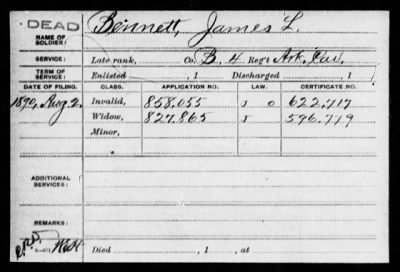 DEAD
NAME OF SOLDIER: Bennett, James L.
SERVICE: Late rank, Co. B, 4 Reg't Ark. Cav.
TERM OF SERVICE: Enlisted , 1 Discharged , 1
DATE OF FILING. CLASS. APPLICATION NO. LAW. CERTIFICATE NO.
1890, Aug 2. Invalid, 858.055 J O 622.717
Widow, 827.865 J 596.779
Minor,
ADDITIONAL SERVICES:
REMARKS:
Died , 1 , at